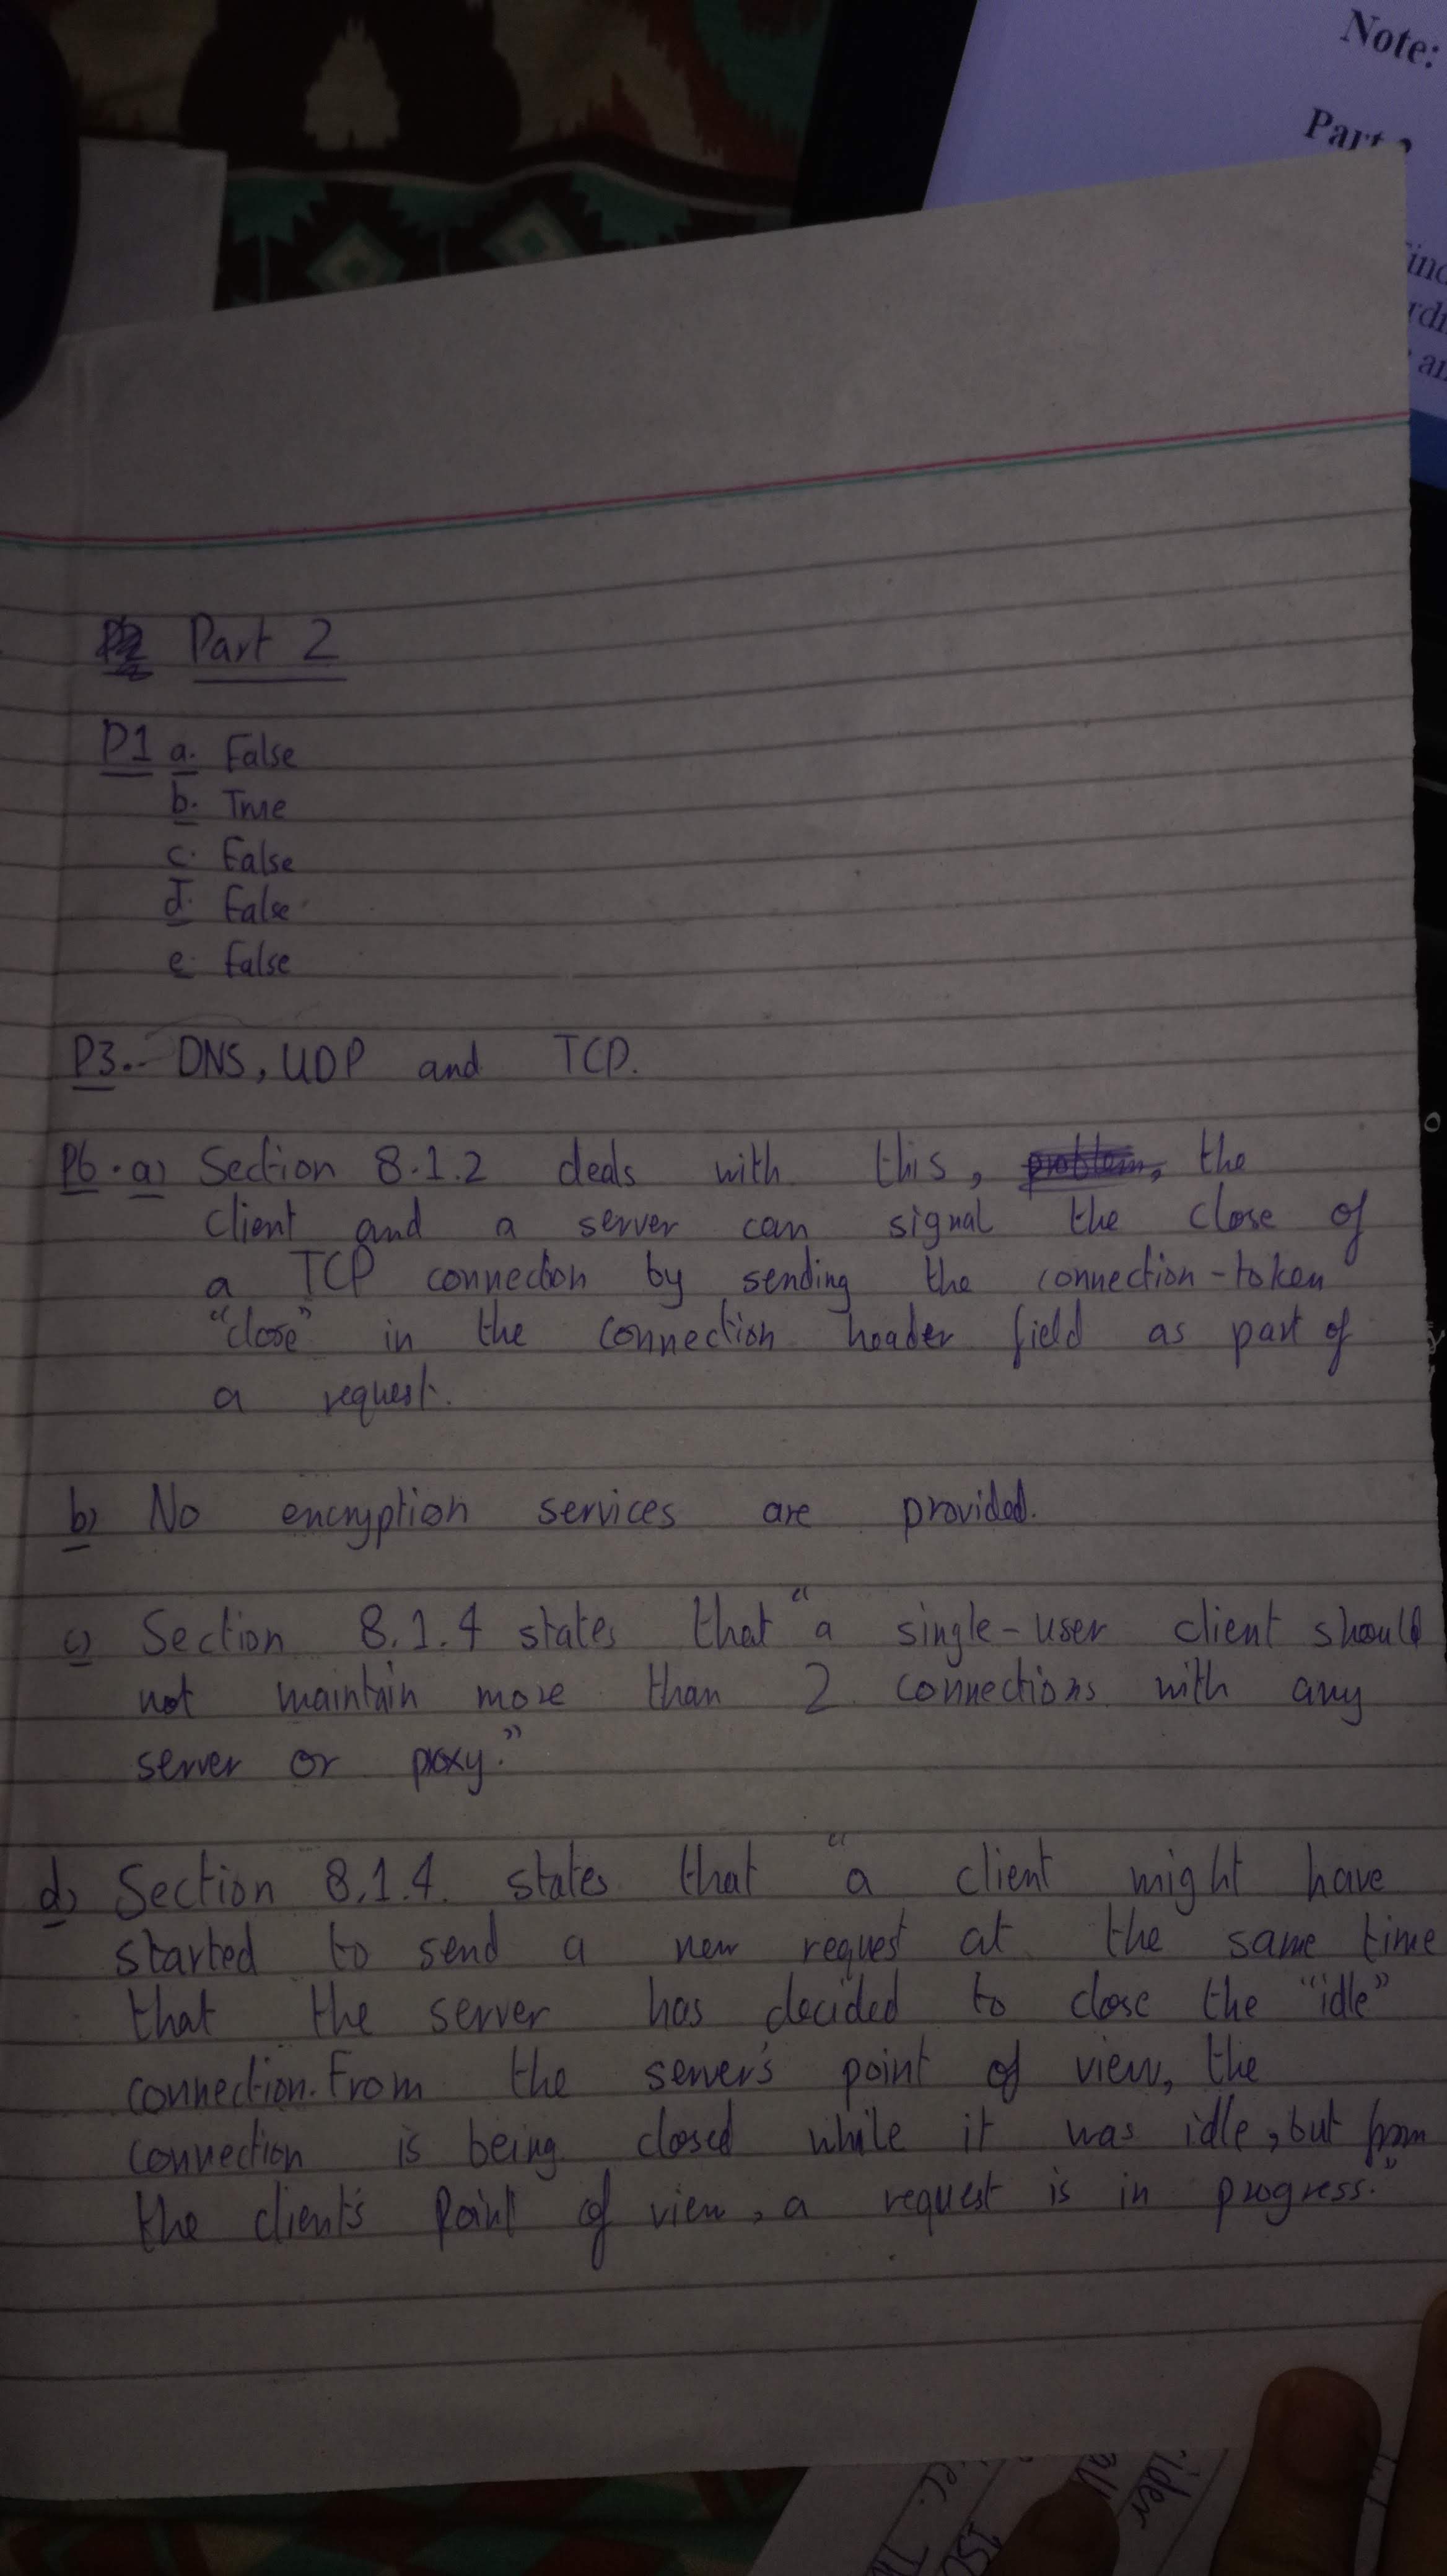 Note:
Part
Part 2
P1 a. False
b. True
c. False
d. False
e. False
P3. DNS, UDP and TCP.
P6. a) Section 8.1.2 deals with this, problem, the
client and a server can signal the close of
a TCP connection by sending the connection-token
"close" in the connection header field as part of
a request.
b) No encryption services are provided.
c) Section 8.1.4 states that "a single-user client should
not maintain more than 2 connections with any
server or proxy."
d) Section 8.1.4. states that "a client might have
started to send a new request at the same time
that the server has decided to close the "idle"
connection. From the server's point of view, the
connection is being closed while it was idle, but from
the client's point of view, a request is in progress."